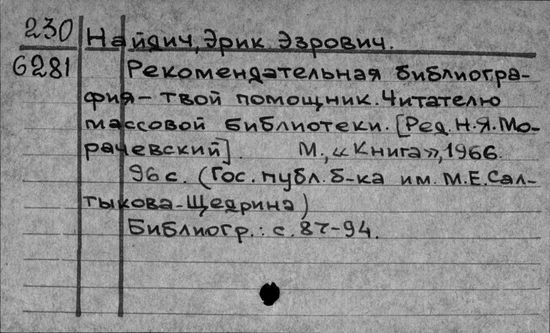 230
6281
Найдич, Эрик Эзрович.
Рекомендательная библиогра-
фия – твой помощник. Читателю
массовой библиотеки. [Ред. Н.Я. Мо-
рачевский]. М., «Книга», 1966.
96 с. (Гос. публ. б-ка им. М.Е. Сал-
тыкова-Щедрина)
Библиогр.: с. 87-94.